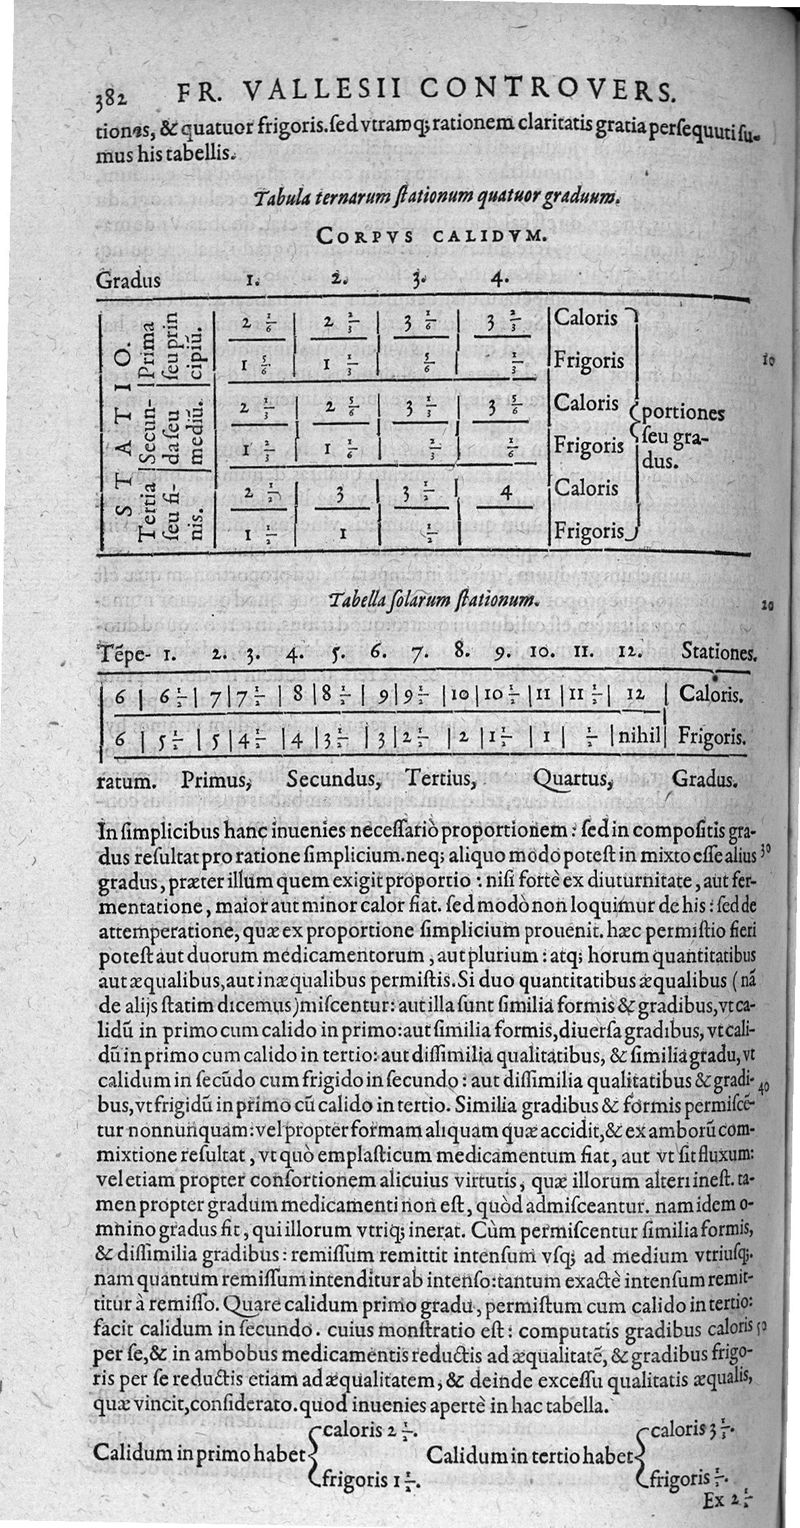 382 FR. VALLESII CONTROVERS.
tiones, & quatuor frigoris. sed vtramq; rationem claritatis gratia persequuti su-
mus his tabellis.
Tabula ternarum stationum quatuor graduum.
CORPVS CALIDVM.
Gradus 1. 2. 3. 4.
STATIO.
Prima seu prin cipiū. | 2 1/6 | 2 2/3 | 3 1/6 | 3 2/3 | Caloris
1 5/6 | 1 1/3 | 5/6 | 1/3 | Frigoris
Secun- da seu mediū. | 2 1/3 | 2 5/6 | 3 1/3 | 3 5/6 | Caloris
1 2/3 | 1 1/6 | 2/3 | 1/6 | Frigoris
Tertia seu fi- nis. | 2 1/2 | 3 | 3 1/2 | 4 | Caloris
1 1/2 | 1 | 1/2 | Frigoris
portiones
seu gra-
dus.
10
Tabella solarum stationum.
20
Tēpe- 1. 2. 3. 4. 5. 6. 7. 8. 9. 10. 11. 12. Stationes.
6 | 6 1/2 | 7 | 7 1/2 | 8 | 8 1/2 | 9 | 9 1/2 | 10 | 10 1/2 | 11 | 11 1/2 | 12 | Caloris.
6 | 5 1/2 | 5 | 4 1/2 | 4 | 3 1/2 | 3 | 2 1/2 | 2 | 1 1/2 | 1 | 1/2 | nihil | Frigoris.
ratum. Primus, Secundus, Tertius, Quartus, Gradus.
In simplicibus hanc inuenies necessariò proportionem: sed in compositis gra-
dus resultat pro ratione simplicium. neq; aliquo modo potest in mixto esse alius 30
gradus, præter illum quem exigit proportio: nisi fortè ex diuturnitate, aut fer-
mentatione, maior aut minor calor fiat. sed modò non loquimur de his: sed de
attemperatione, quæ ex proportione simplicium prouenit. hæc permistio fieri
potest aut duorum medicamentorum, aut plurium: atq; horum quantitatibus
aut æqualibus, aut inæqualibus permistis. Si duo quantitatibus æqualibus (nā
de alijs statim dicemus) miscentur: aut illa sunt similia formis & gradibus, vt ca-
lidū in primo cum calido in primo: aut similia formis, diuersa gradibus, vt cali-
dū in primo cum calido in tertio: aut dissimilia qualitatibus, & similia gradu, vt
calidum in secūdo cum frigido in secundo: aut dissimilia qualitatibus & gradi- 40
bus, vt frigidū in primo cū calido in tertio. Similia gradibus & formis permiscē-
tur nonnunquam: vel propter formam aliquam quæ accidit, & ex amborū com-
mixtione resultat, vt quò emplasticum medicamentum fiat, aut vt sit fluxum:
vel etiam propter consortionem alicuius virtutis, quæ illorum alteri inest. ta-
men propter gradum medicamenti non est, quòd admisceantur. nam idem o-
mnino gradus fit, qui illorum vtriq; inerat. Cùm permiscentur similia formis,
& dissimilia gradibus: remissum remittit intensum vsq; ad medium vtriusq;.
nam quantum remissum intenditur ab intenso: tantum exactè intensum remit-
titur à remisso. Quare calidum primo gradu, permistum cum calido in tertio:
facit calidum in secundo. cuius monstratio est: computatis gradibus caloris 50
per se, & in ambobus medicamentis reductis ad æqualitatē, & gradibus frigo-
ris per se reductis etiam ad æqualitatem, & deinde excessu qualitatis æqualis,
quæ vincit, considerato. quod inuenies apertè in hac tabella.
Calidum in primo habet { caloris 2 1/2. frigoris 1 1/2. Calidum in tertio habet { caloris 3 1/2. frigoris 1/2.
Ex 2 1/2